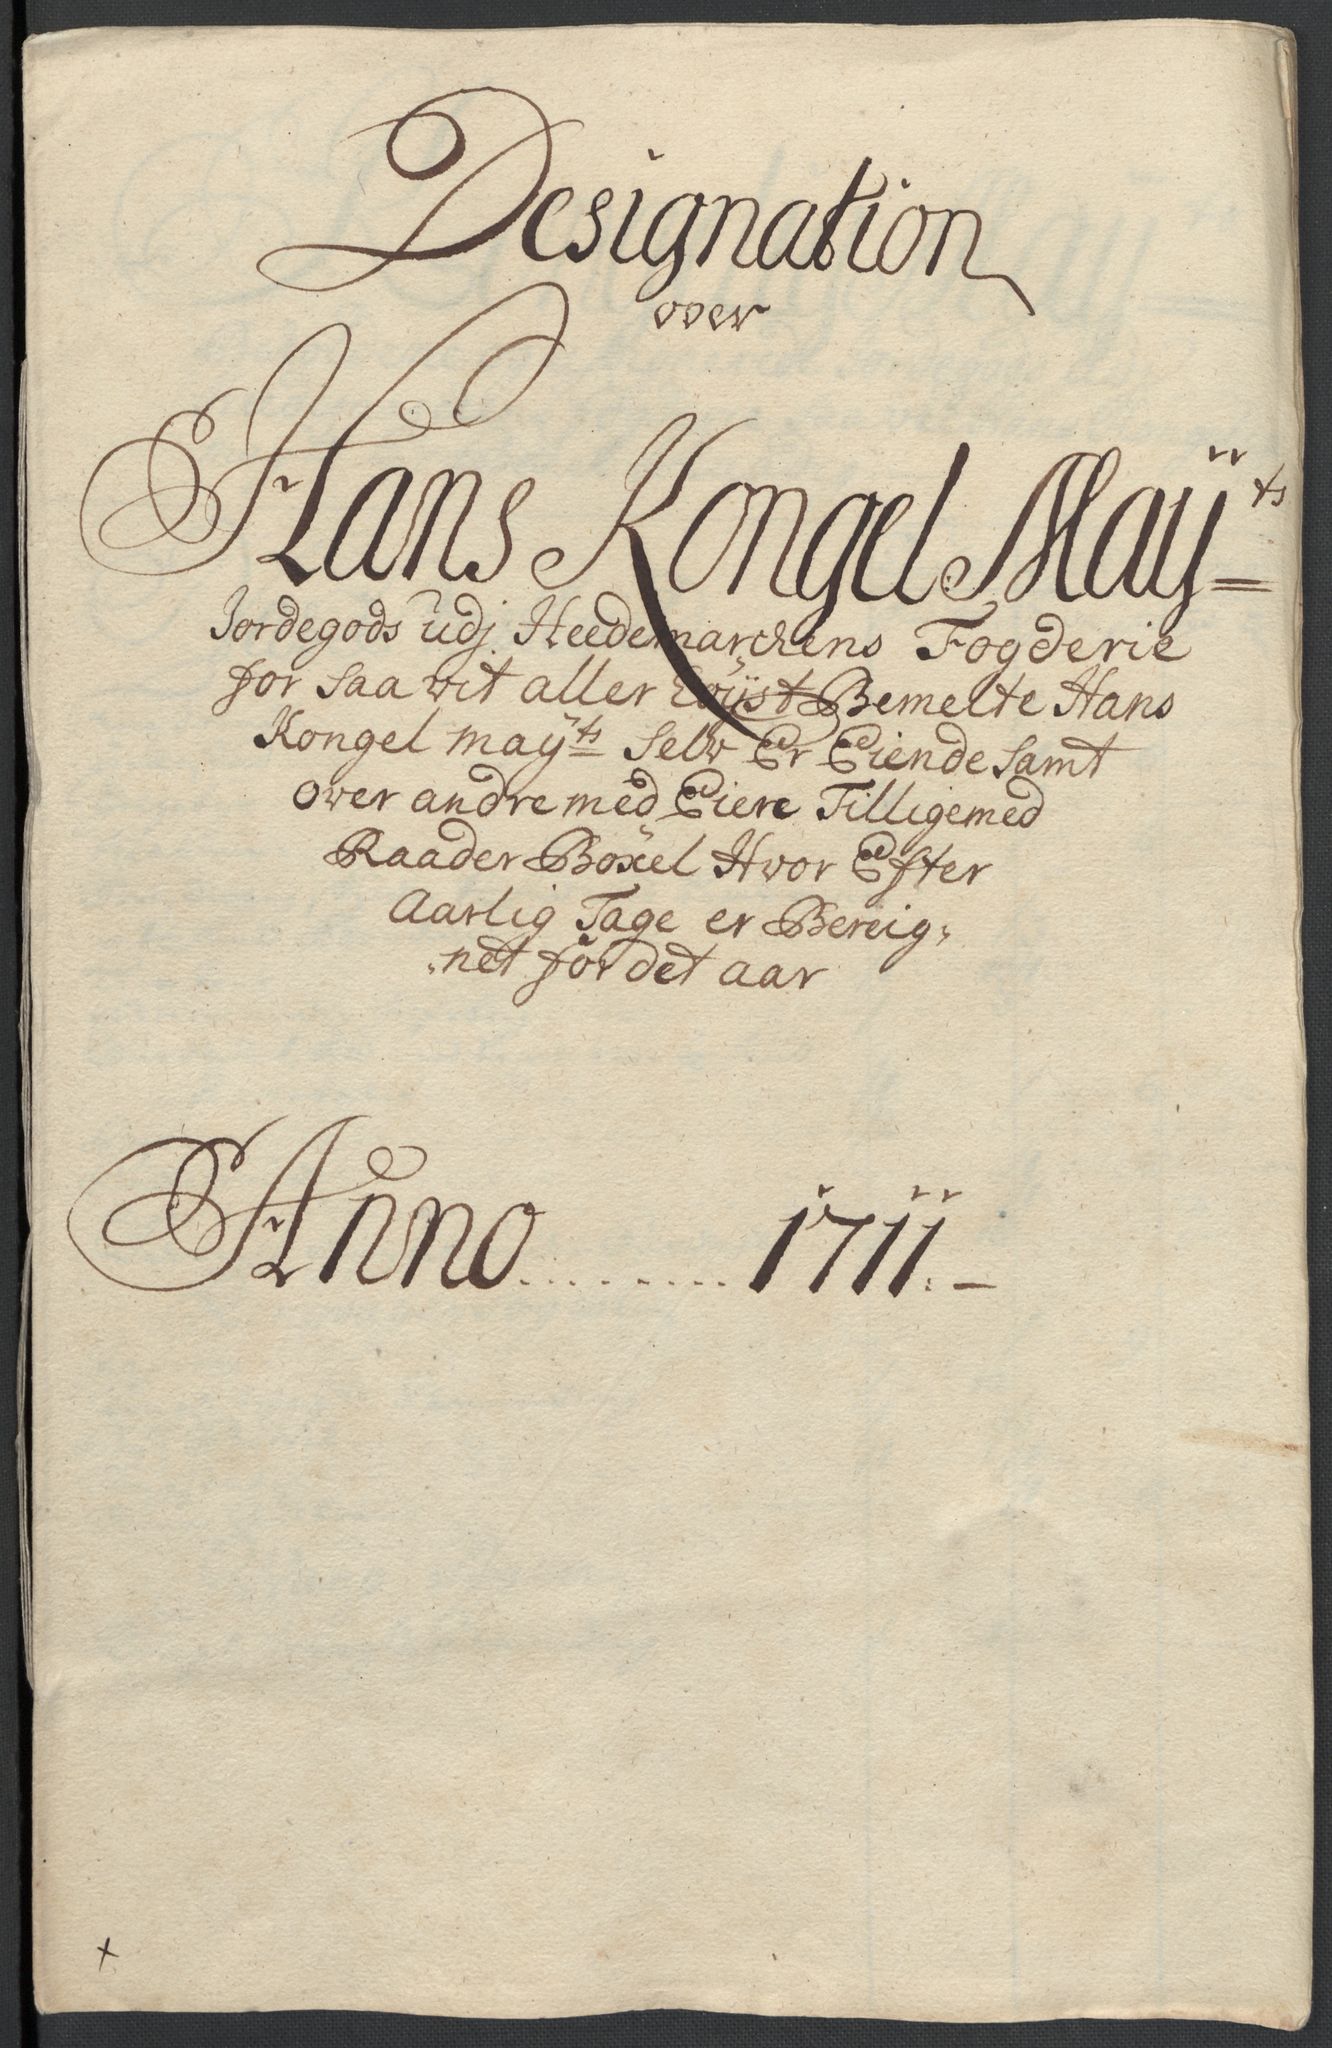 Designation
over
Hans Kongel Maÿts
Jordegods udj Heedemarchens Fogderie
for saa vit aller Bemelte Hans
Kongel maÿts selv Er Eiende samt
over andre med Eiere Tillige med
Raader Böxel Hvor Efter
Aarlig Tage er Bereig,
,net för det aar
Anno ........ 1711. –
+